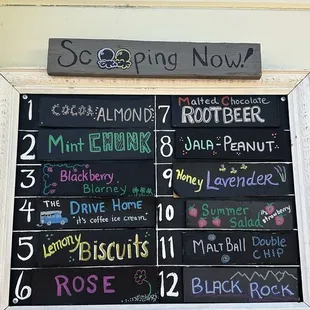 Scooping Now!
1 COCOA ALMOND
2 Mint CHUNK
3 Blackberry
Blarney
4 THE DRIVE HOME
"it's coffee ice cream"
5 Lemony BISCUITS
6 ROSE
7 Malted Chocolate
ROOTBEER
8 JALA-PEANUT
9 Honey LAVENDER
10 Summer
Salad
strawberry
11 MALTBALL DOUBLE
CHIP
12 BLACK ROCK